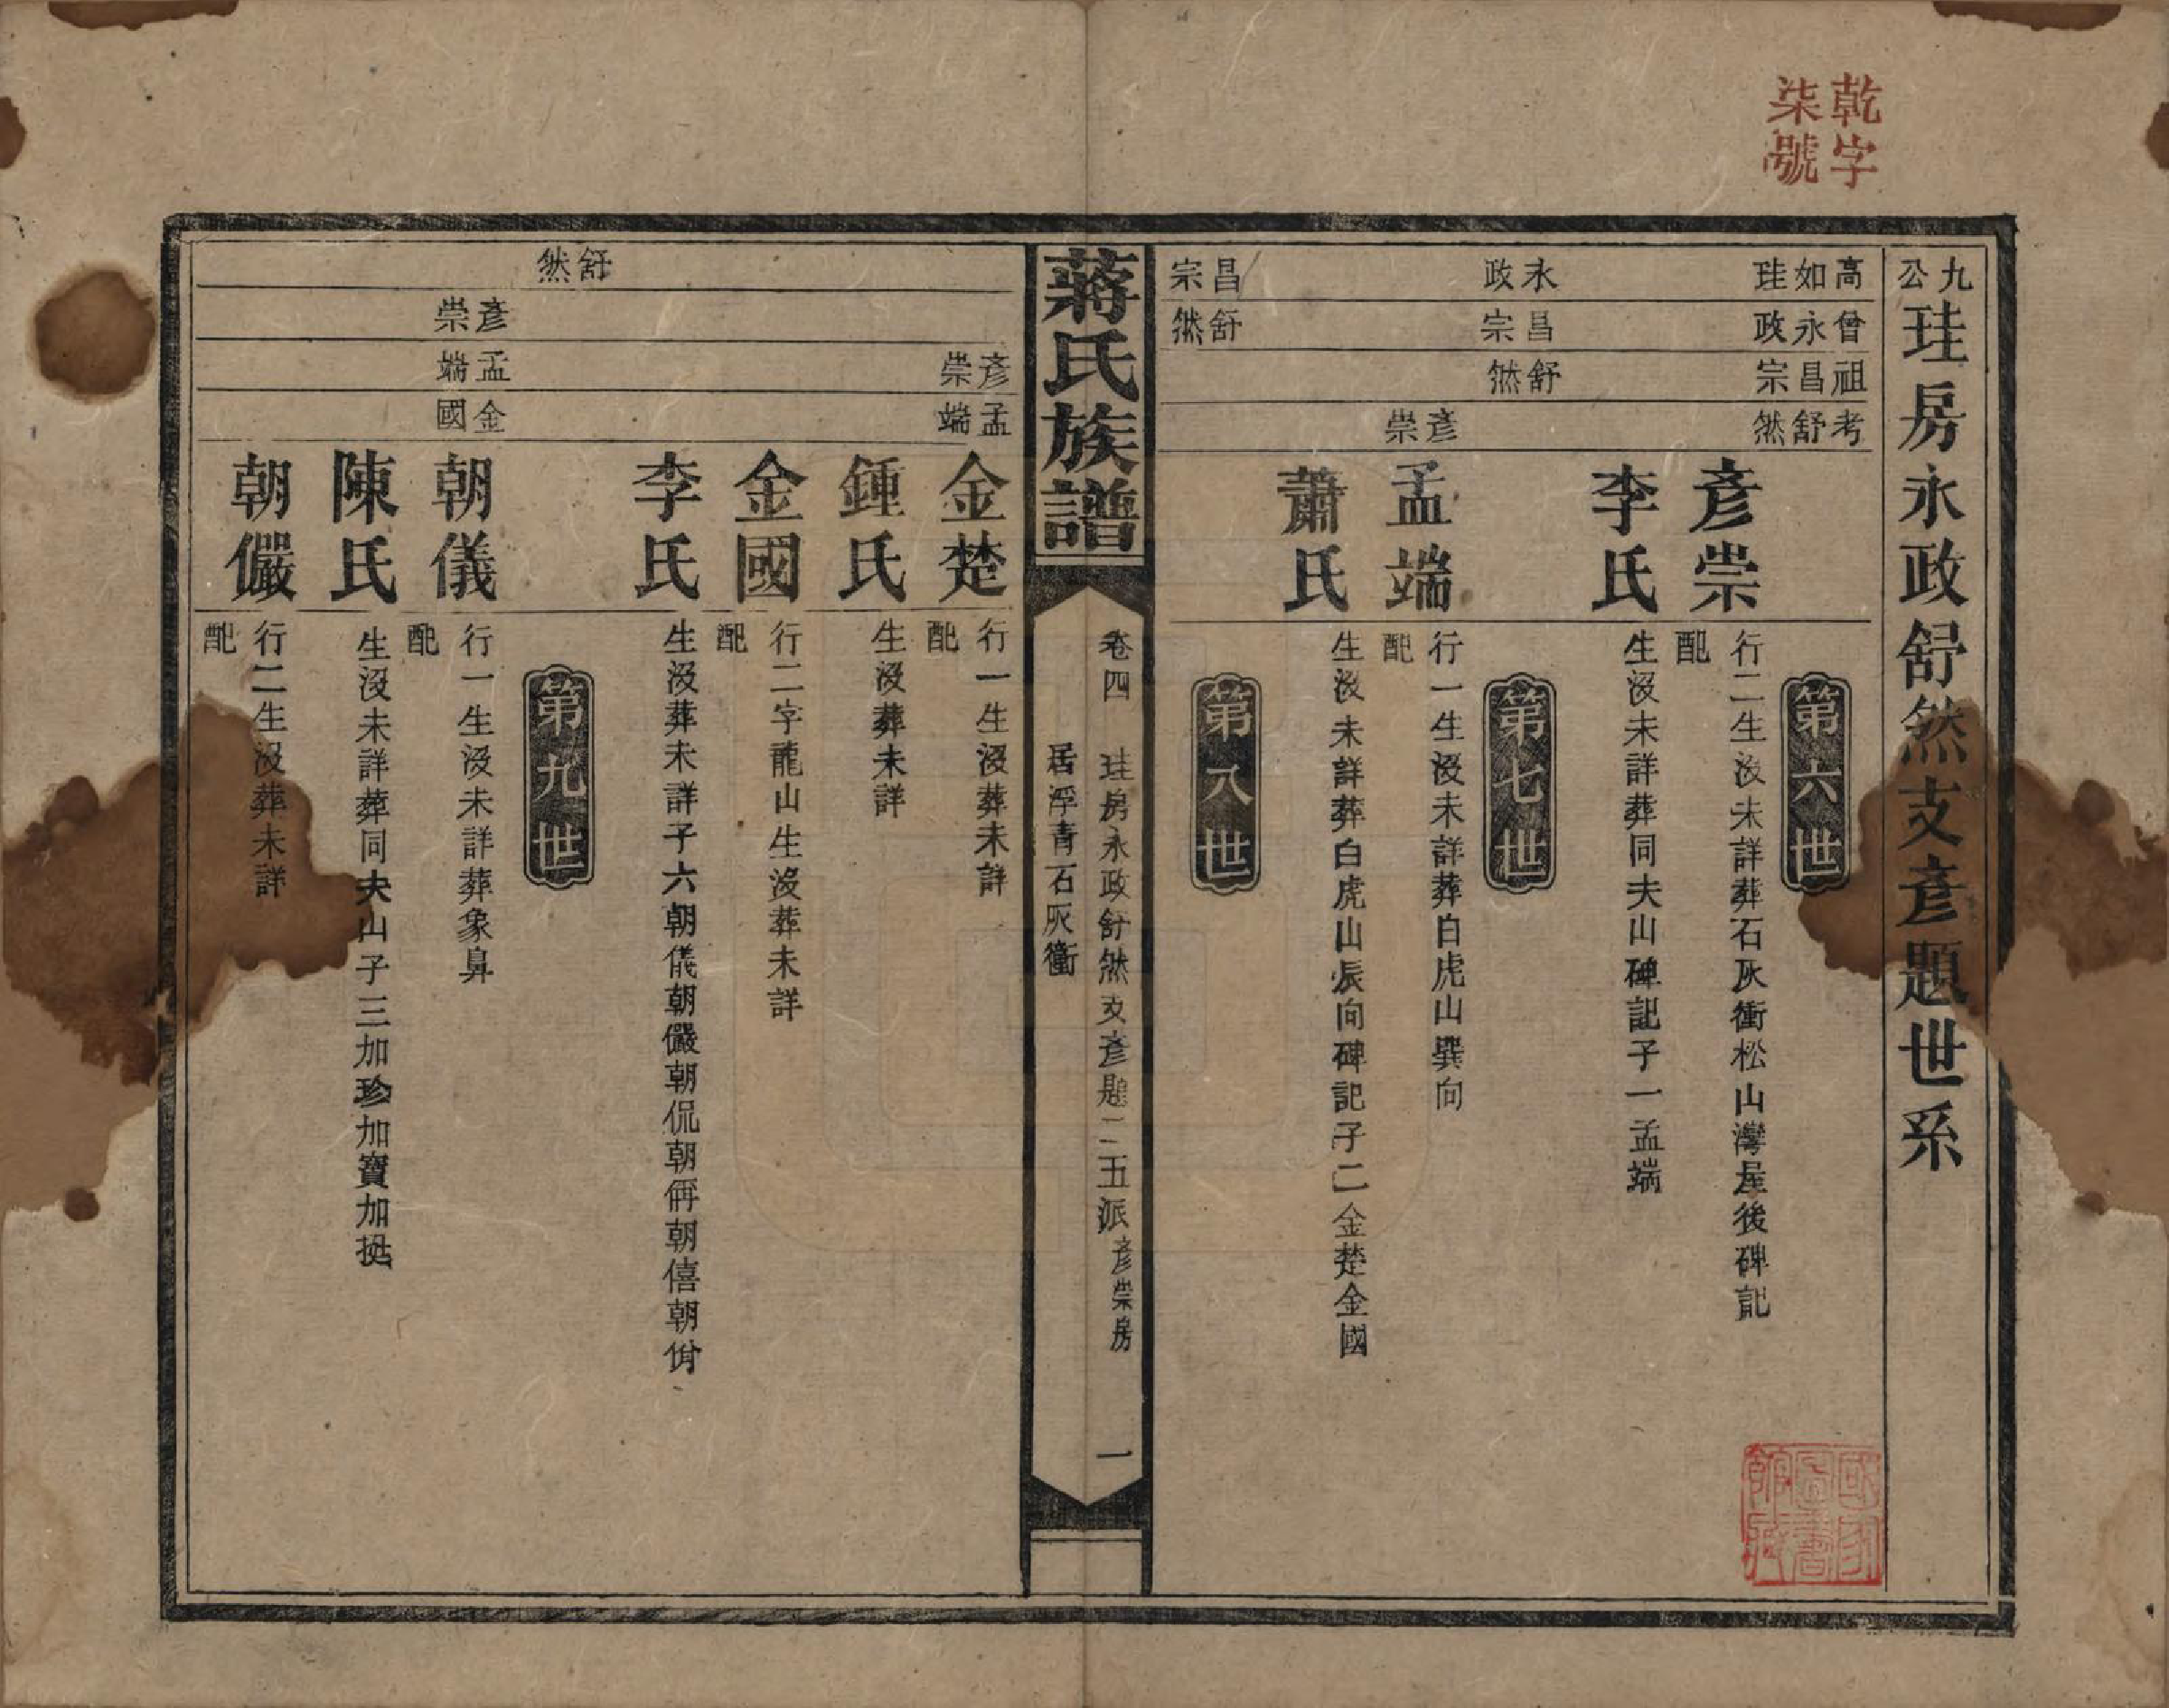 乾字
柒號
九公珪房永政舒然支彥題世系
高如珪
曾永政
祖昌宗
考舒然
第六世
彥崇
行二生沒未詳葬石灰衝松山灣屋後碑記
配
李氏
生沒未詳葬同夫山碑記子一孟端
永政
昌宗
舒然
第七世
彥崇
孟端
行一生沒未詳葬白虎山巽向
配
蕭氏
生沒未詳葬白虎山辰向碑記子二金楚金國
昌宗
舒然
第八世
蔣氏族譜
卷四
珪房永政舒然支彥題二五派彥崇房
居浮青石灰衝
一
彥崇
孟端
金楚
行一生沒葬未詳
配
鍾氏
生沒葬未詳
金國
行二字龍山生沒葬未詳
配
李氏
生沒葬未詳子六朝儀朝儼朝侃朝侢朝僖朝佾
舒然
第九世
彥崇
孟端
金國
朝儀
行一生沒未詳葬象鼻
配
陳氏
生沒未詳葬同夫山子三加珍加寶加挺
朝儼
行二生沒葬未詳
配
國家圖書館藏